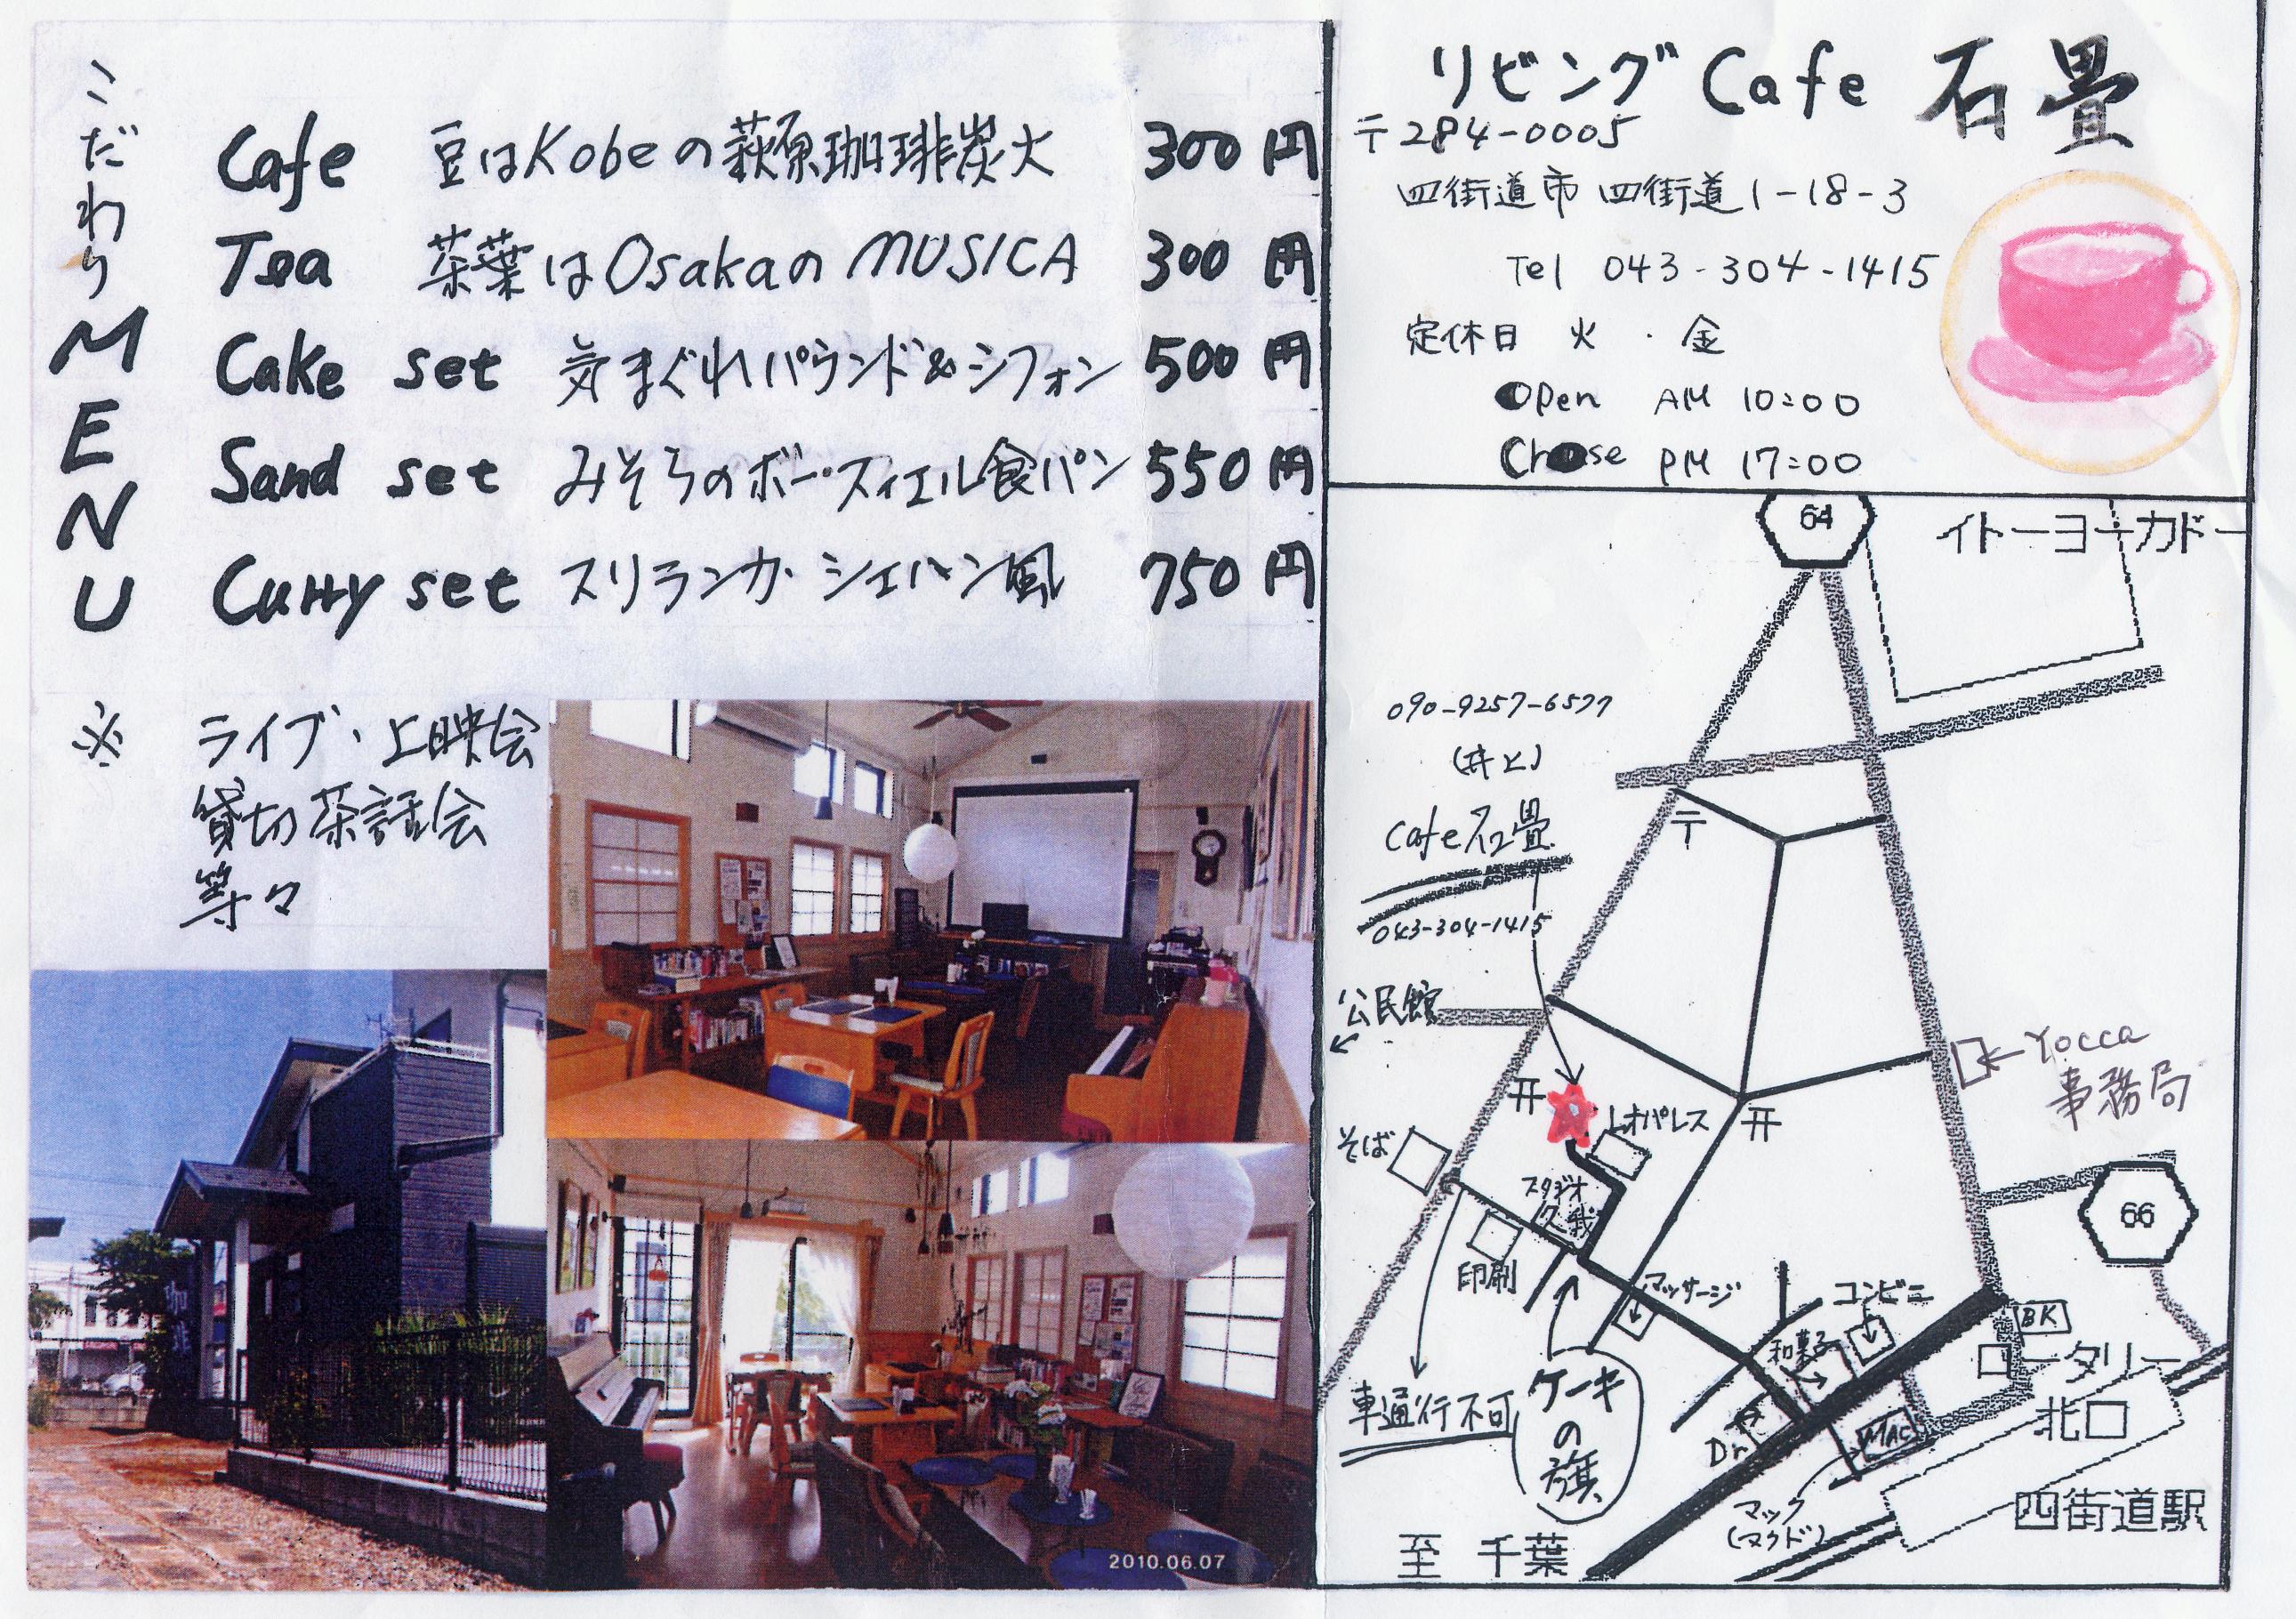 こだわり MENU
Cafe 豆はKobeの萩原珈琲炭火 300円
Tea 茶葉はOsakaのMUSICA 300円
Cake set 気まぐれパウンド&シフォン 500円
Sand set みそらのボー・スィエル食パン 550円
Curry set スリランカ・シェハン風 750円
※ ライブ・上映会
貸切茶話会
等々
2010.06.07
リビング Cafe 石畳
〒284-0005
四街道市 四街道1-18-3
Tel 043-304-1415
定休日 火・金
Open AM 10:00
PM 17:00
64
イトーヨーカドー
090-9257-6577
(井上)
Cafe石畳
043-304-1415
〒
公民館
Yocca
事務局
井
レオパレス
井
そば
スタジオ
久我
66
印刷
マッサージ
コンビニ
BK
和菓子
ロータリー
車通行不可
ケーキ
の
旗
Dr
MAC
北口
マック
(マクド)
四街道駅
至 千葉